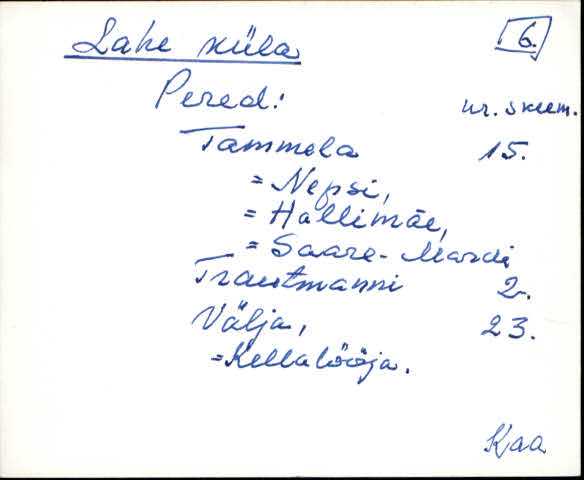 Lahe küla 6.
Pered: nr. skeem.
Tammela 15.
= Nepsi,
= Hallimäe,
= Saare-Mardi
Trautmanni 2.
Välja, 23.
= Kellalööja.
Kaa